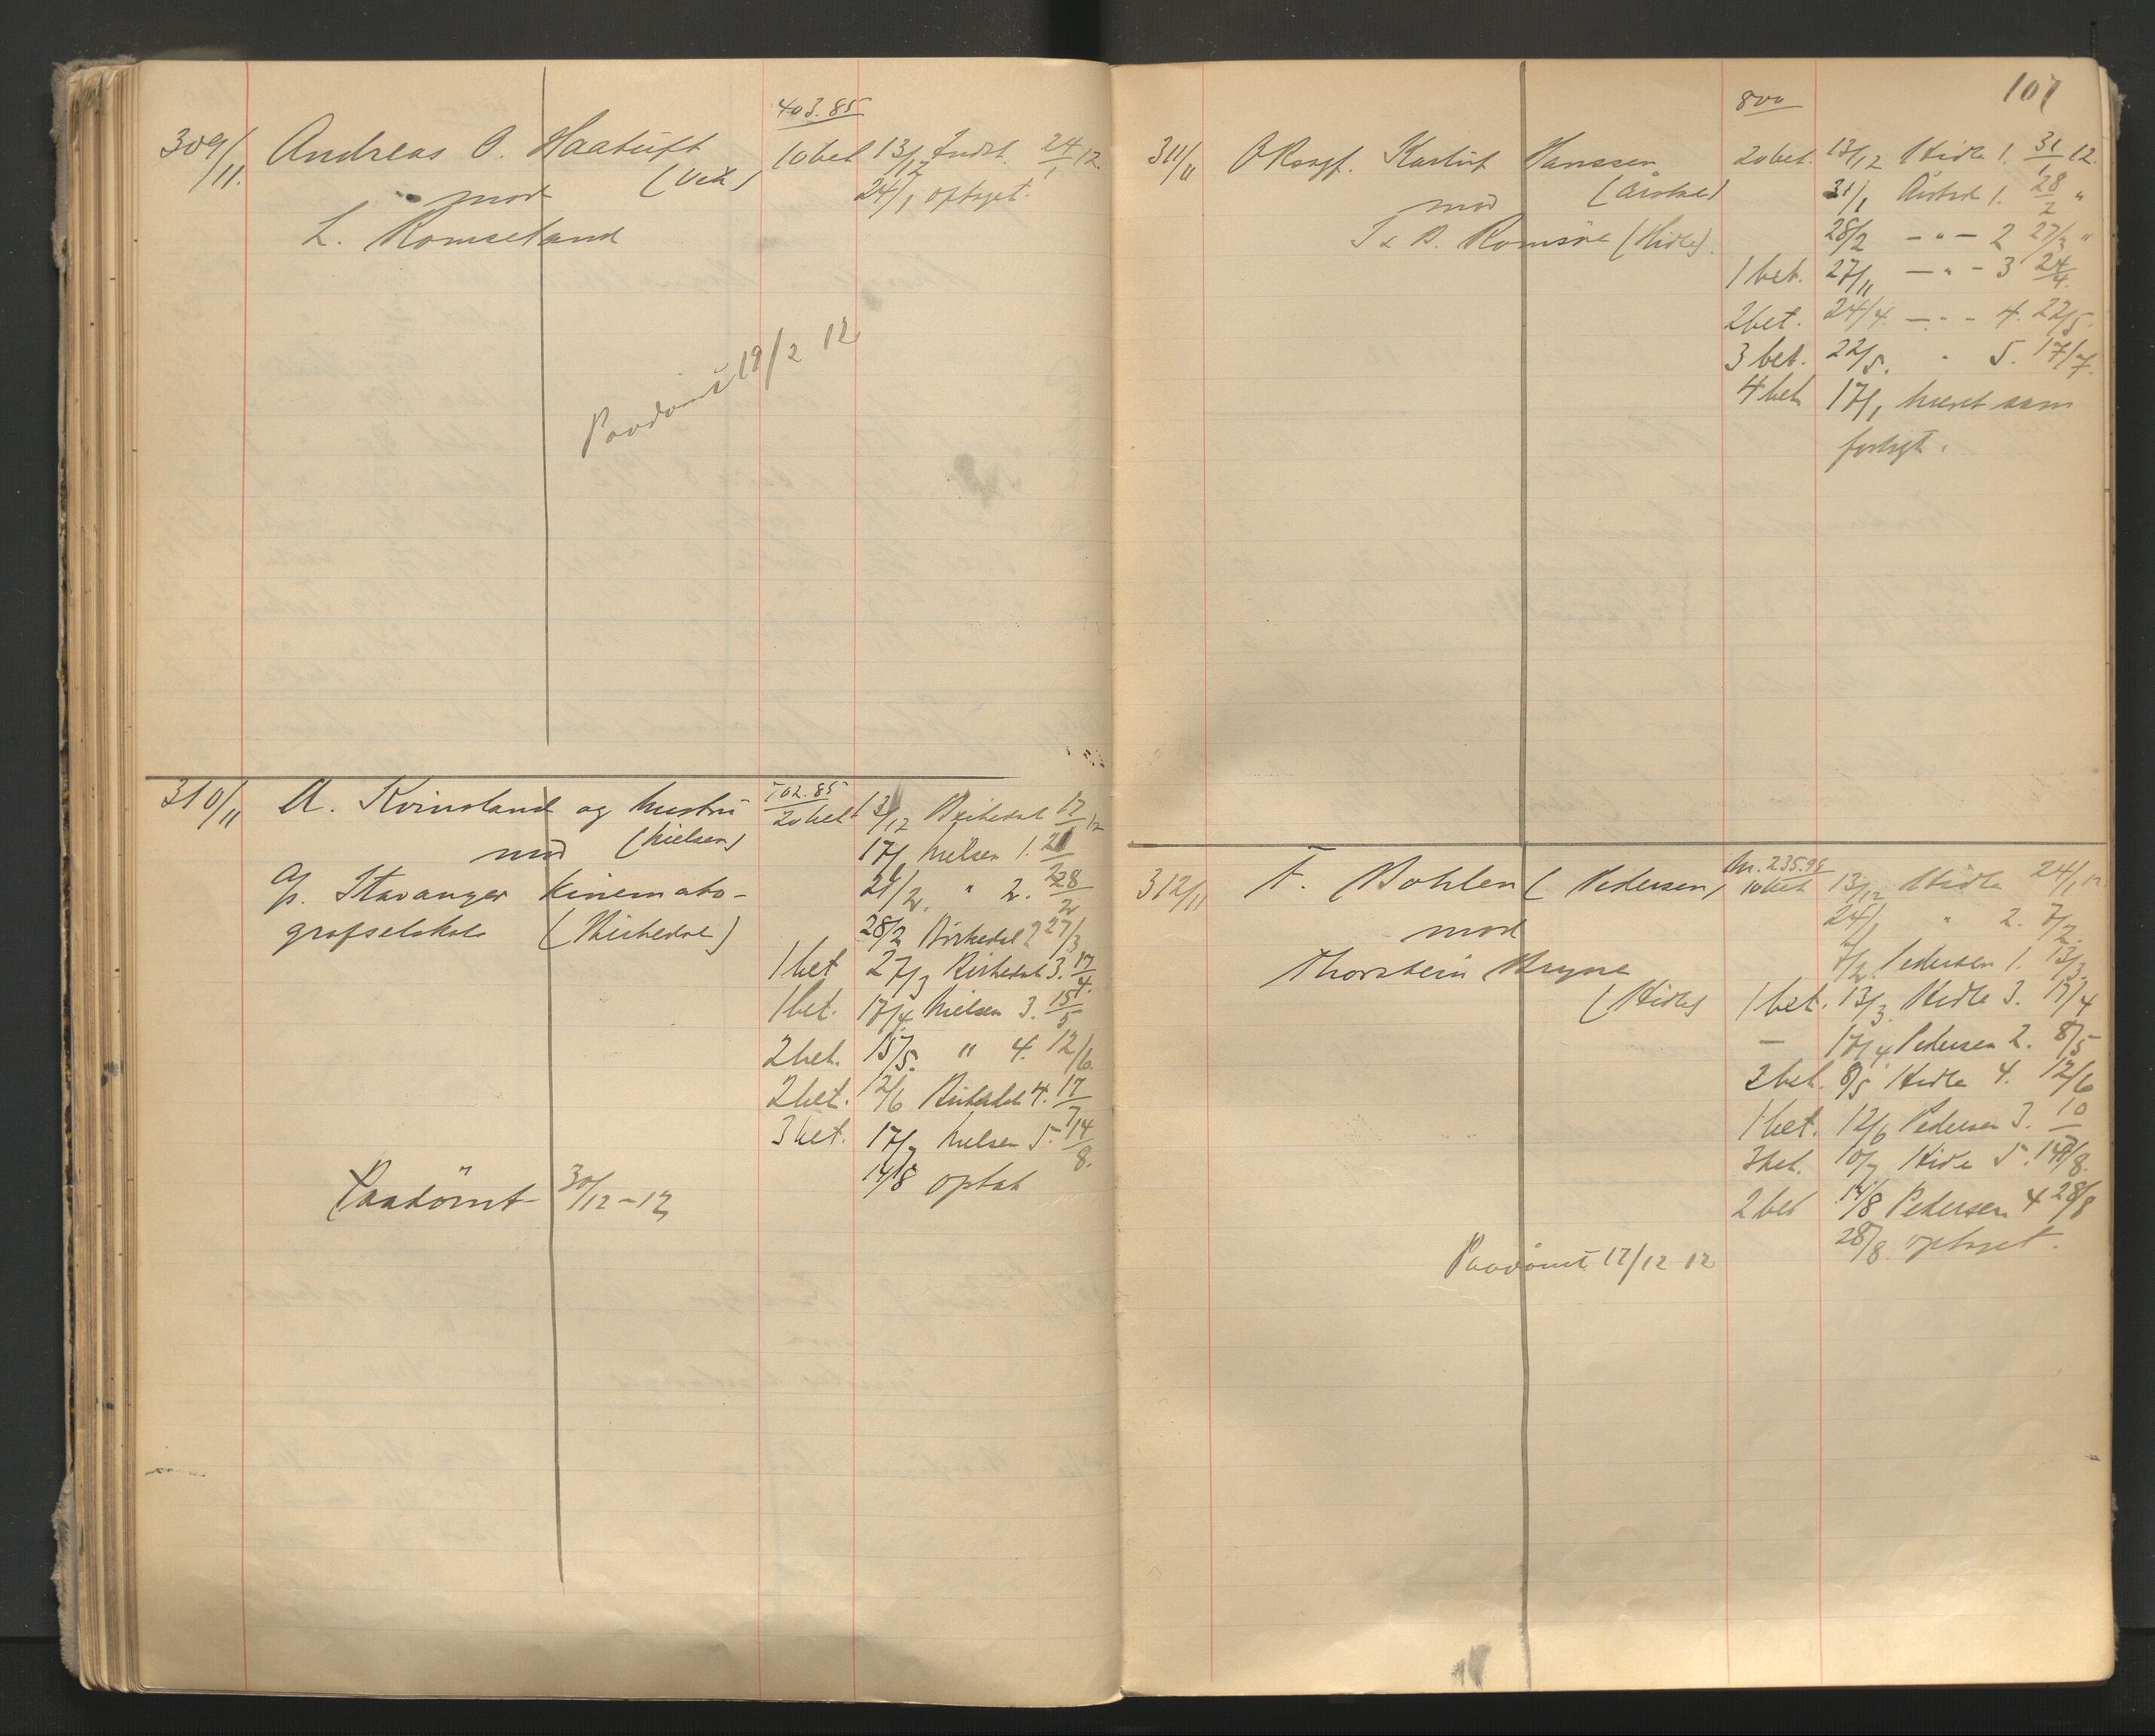 403.85
309/11. Andreas O. Haatuft 10 bet 13/12 Indst. 24/1 12.
mod (Vik) 24/1 optaget.
L. Romseland
Paadömt 19/2 12
310/11 A. Kvinsland og hustru 702.85
mod (Nielsen) 20 bet 13/12 Birkedal 17/1 12
A/S. Stavanger Kinemato- 17/1 Nielsen 1. 21/2
grafselskab (Birkedal) 21/2. " 2. 28/2
28/2 Birkedal 2 27/3
1 bet 27/3 Birkedal 3. 17/4.
1 bet. 17/4 Nielsen 3. 15/5
2 bet. 15/5. " 4. 12/6.
2 bet. 12/6 Birkedal 4. 17/7
3 bet. 17/7 Nielsen 5. 14/8.
14/8 optat
Paadömt 30/12-12
107
800
311/11 Karluf Hanssen 20 bet. 13/12 Hidle 1. 31/1 12.
mod 31/1 1. 28/2 "
T & B. (Hidle). 28/2 — " — 2 27/3 "
1 bet. 27/11 — " - 3 24/4.
2 bet. 24/4. — " - 4. 22/5.
3 bet. 22/5. " 5. 17/7.
4 bet 17/1 hævet som
forligt.
312/11 F. Bohlen (Pedersen) 235.96
10 bet 13/12 Hidle 24/1 12
mod 24/1 " 2. 7/2.
Thorstein Bryne 7/2. Pedersen 1. 13/3.
(Hidle) 1 bet. 13/3. Hidle 3. 17/4
— 17/4 Pedersen 2. 8/5
2 bet. 8/5 Hidle 4. 12/6
1 bet. 12/6 Pedersen 3. 10
3 bet. 10/7 Hidle 5. 14/8.
2 bet 14/8 Pedersen 4 28/8
28/8. optaget.
Paadömt 17/12 12